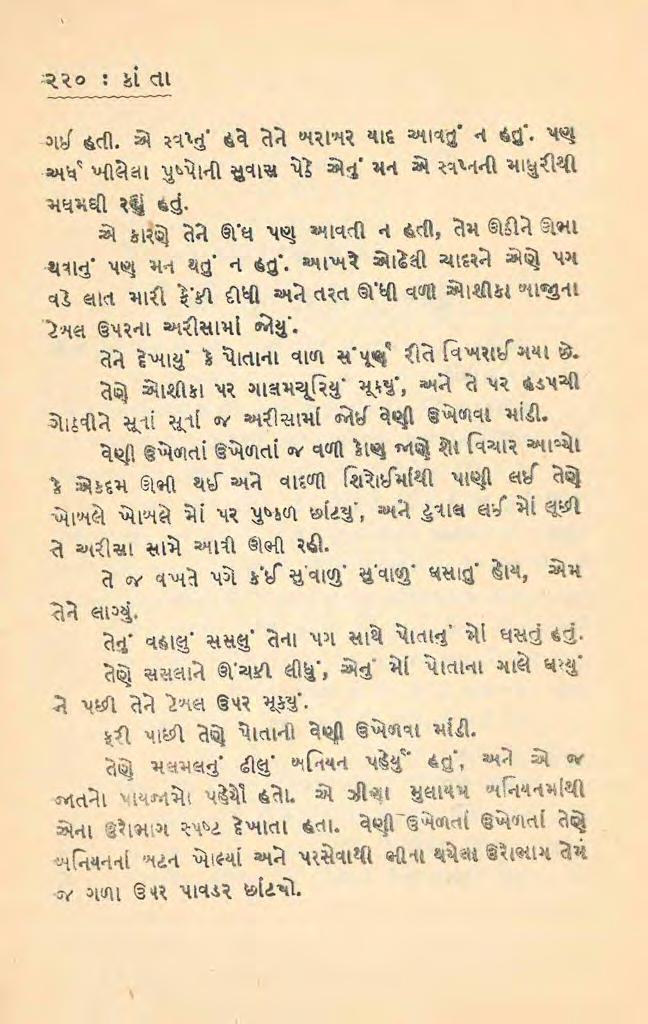 ૨૨૦ : કાંતા
ગઈ હતી. એ સ્વપ્નું હવે તેને બરાબર યાદ આવતું ન હતું. પણ
અર્ધ ખીલેલા પુષ્પોની સુવાસ પેઠે એનું મન એ સ્વપ્નની માધુરીથી
મઘમઘી રહ્યું હતું.
એ કારણે તેને ઊંઘ પણ આવતી ન હતી, તેમ ઊઠીને ઊભા
થવાનું પણ મન થતું ન હતું. આખરે ઓઢેલી ચાદરને એણે પગ
વડે લાત મારી ફેંકી દીધી અને તરત ઊંધી વળી ઓશીકા બાજુના
ટેબલ ઉપરના અરીસામાં જોયું.
તેને દેખાયું કે પોતાના વાળ સંપૂર્ણ રીતે વિખરાઈ ગયા છે.
તેણે ઓશીકા પર ગાલમચૂરિયું મૂક્યું, અને તે પર હડપચી
ગોઠવીને સૂતાં સૂતાં જ અરીસામાં જોઈ વેણી ઉખેળવા માંડી.
વેણી ઉખેળતાં ઉખેળતાં જ વળી કોણ જાણે શો વિચાર આવ્યો
કે એકદમ ઊભી થઈ અને વાદળી શિરોઈમાંથી પાણી લઈ તેણે
ખોબલે ખોબલે મોં પર પુષ્કળ છાંટ્યું, અને ટુવાલ લઈ મોં લૂછી
તે અરીસા સામે આવી ઊભી રહી.
તે જ વખતે પગે કંઈ સુંવાળું સુંવાળું ઘસાતું હોય, એમ
તેને લાગ્યું.
તેનું વહાલું સસલું તેના પગ સાથે પોતાનું મોં ઘસતું હતું.
તેણે સસલાને ઊંચકી લીધું, એનું મોં પોતાના ગાલે ઘસ્યું
ને પછી તેને ટેબલ ઉપર મૂક્યું.
ફરી પાછી તેણે પોતાની વેણી ઉખેળવા માંડી.
તેણે મલમલનું ઢીલું બનિયન પહેર્યું હતું, અને એ જ
જાતનો પાયજામો પહેર્યો હતો. એ ઝીણા મુલાયમ બનિયનમાંથી
એના ઉરોભાગ સ્પષ્ટ દેખાતા હતા. વેણી ઉખેળતાં ઉખેળતાં તેણે
બનિયનનાં બટન ખોલ્યાં અને પરસેવાથી ભીના થયેલા ઉરોભાગ તેમ
જ ગળા ઉપર પાવડર છાંટ્યો.